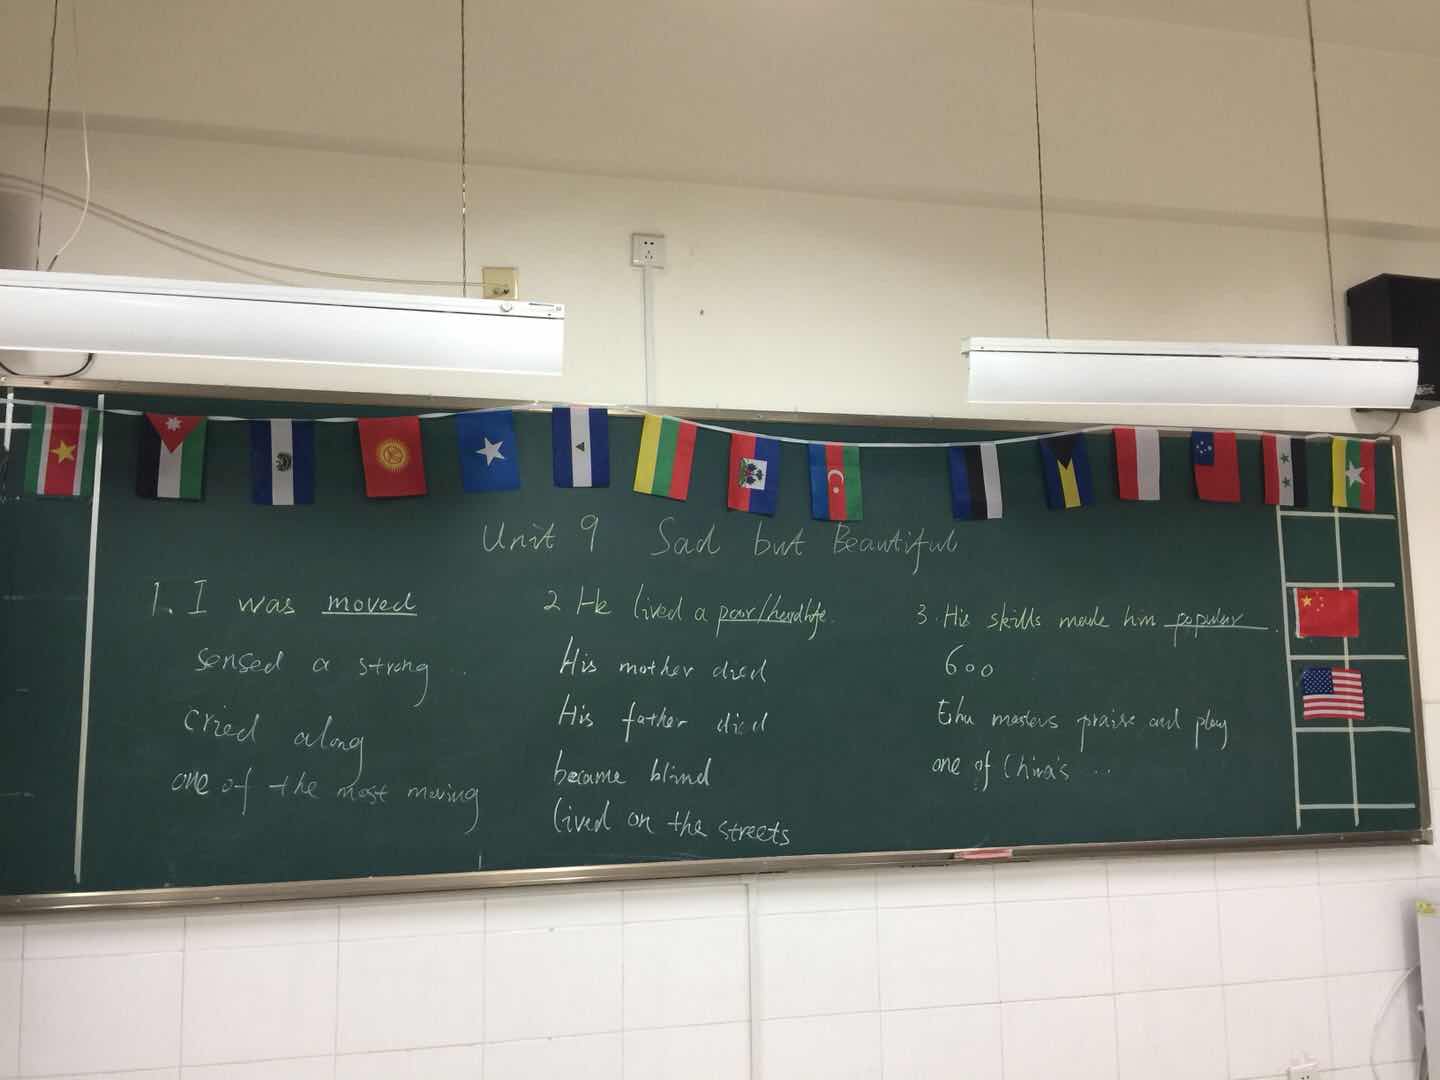 Unit 9 Sad but Beautiful
1. I was moved
sensed a strong ..
cried along
one of the most moving
2 He lived a poor/hard life.
His mother died
His father died
became blind
lived on the streets
3. His skills made him popular.
600
Erhu masters praise and play
one of China's ...